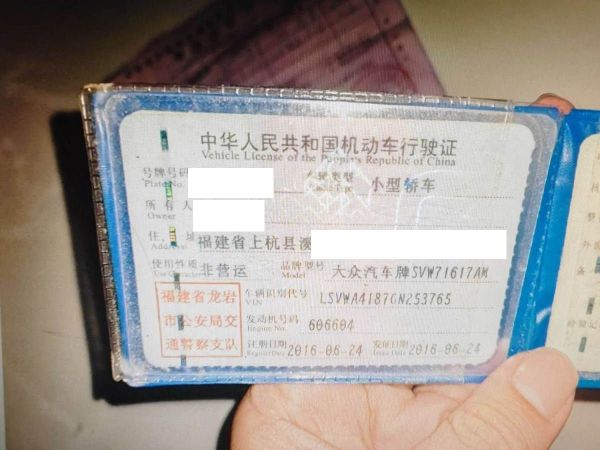 中华人民共和国机动车行驶证
Vehicle License of the People's Republic of China
号牌号码
Plate No.
车辆类型 小型轿车
所有人
Owner
住址 福建省上杭县溪
Address
使用性质 非营运
品牌型号 大众汽车牌SVW71617AM
福建省龙岩
市公安局交
通警察支队
车辆识别代号 LSVWA4187GN253765
VIN
发动机号码 606604
Engine No.
注册日期 2016-06-24
Register Date
发证日期 2016-06-24
Issue Date